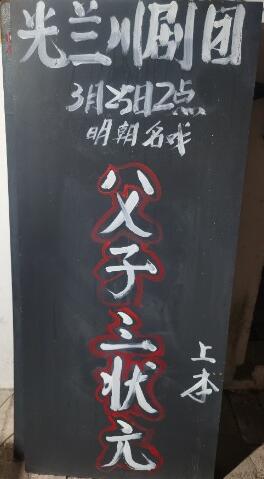 光兰川剧团
3月25日2点
明朝名戏
父子三状元
上本